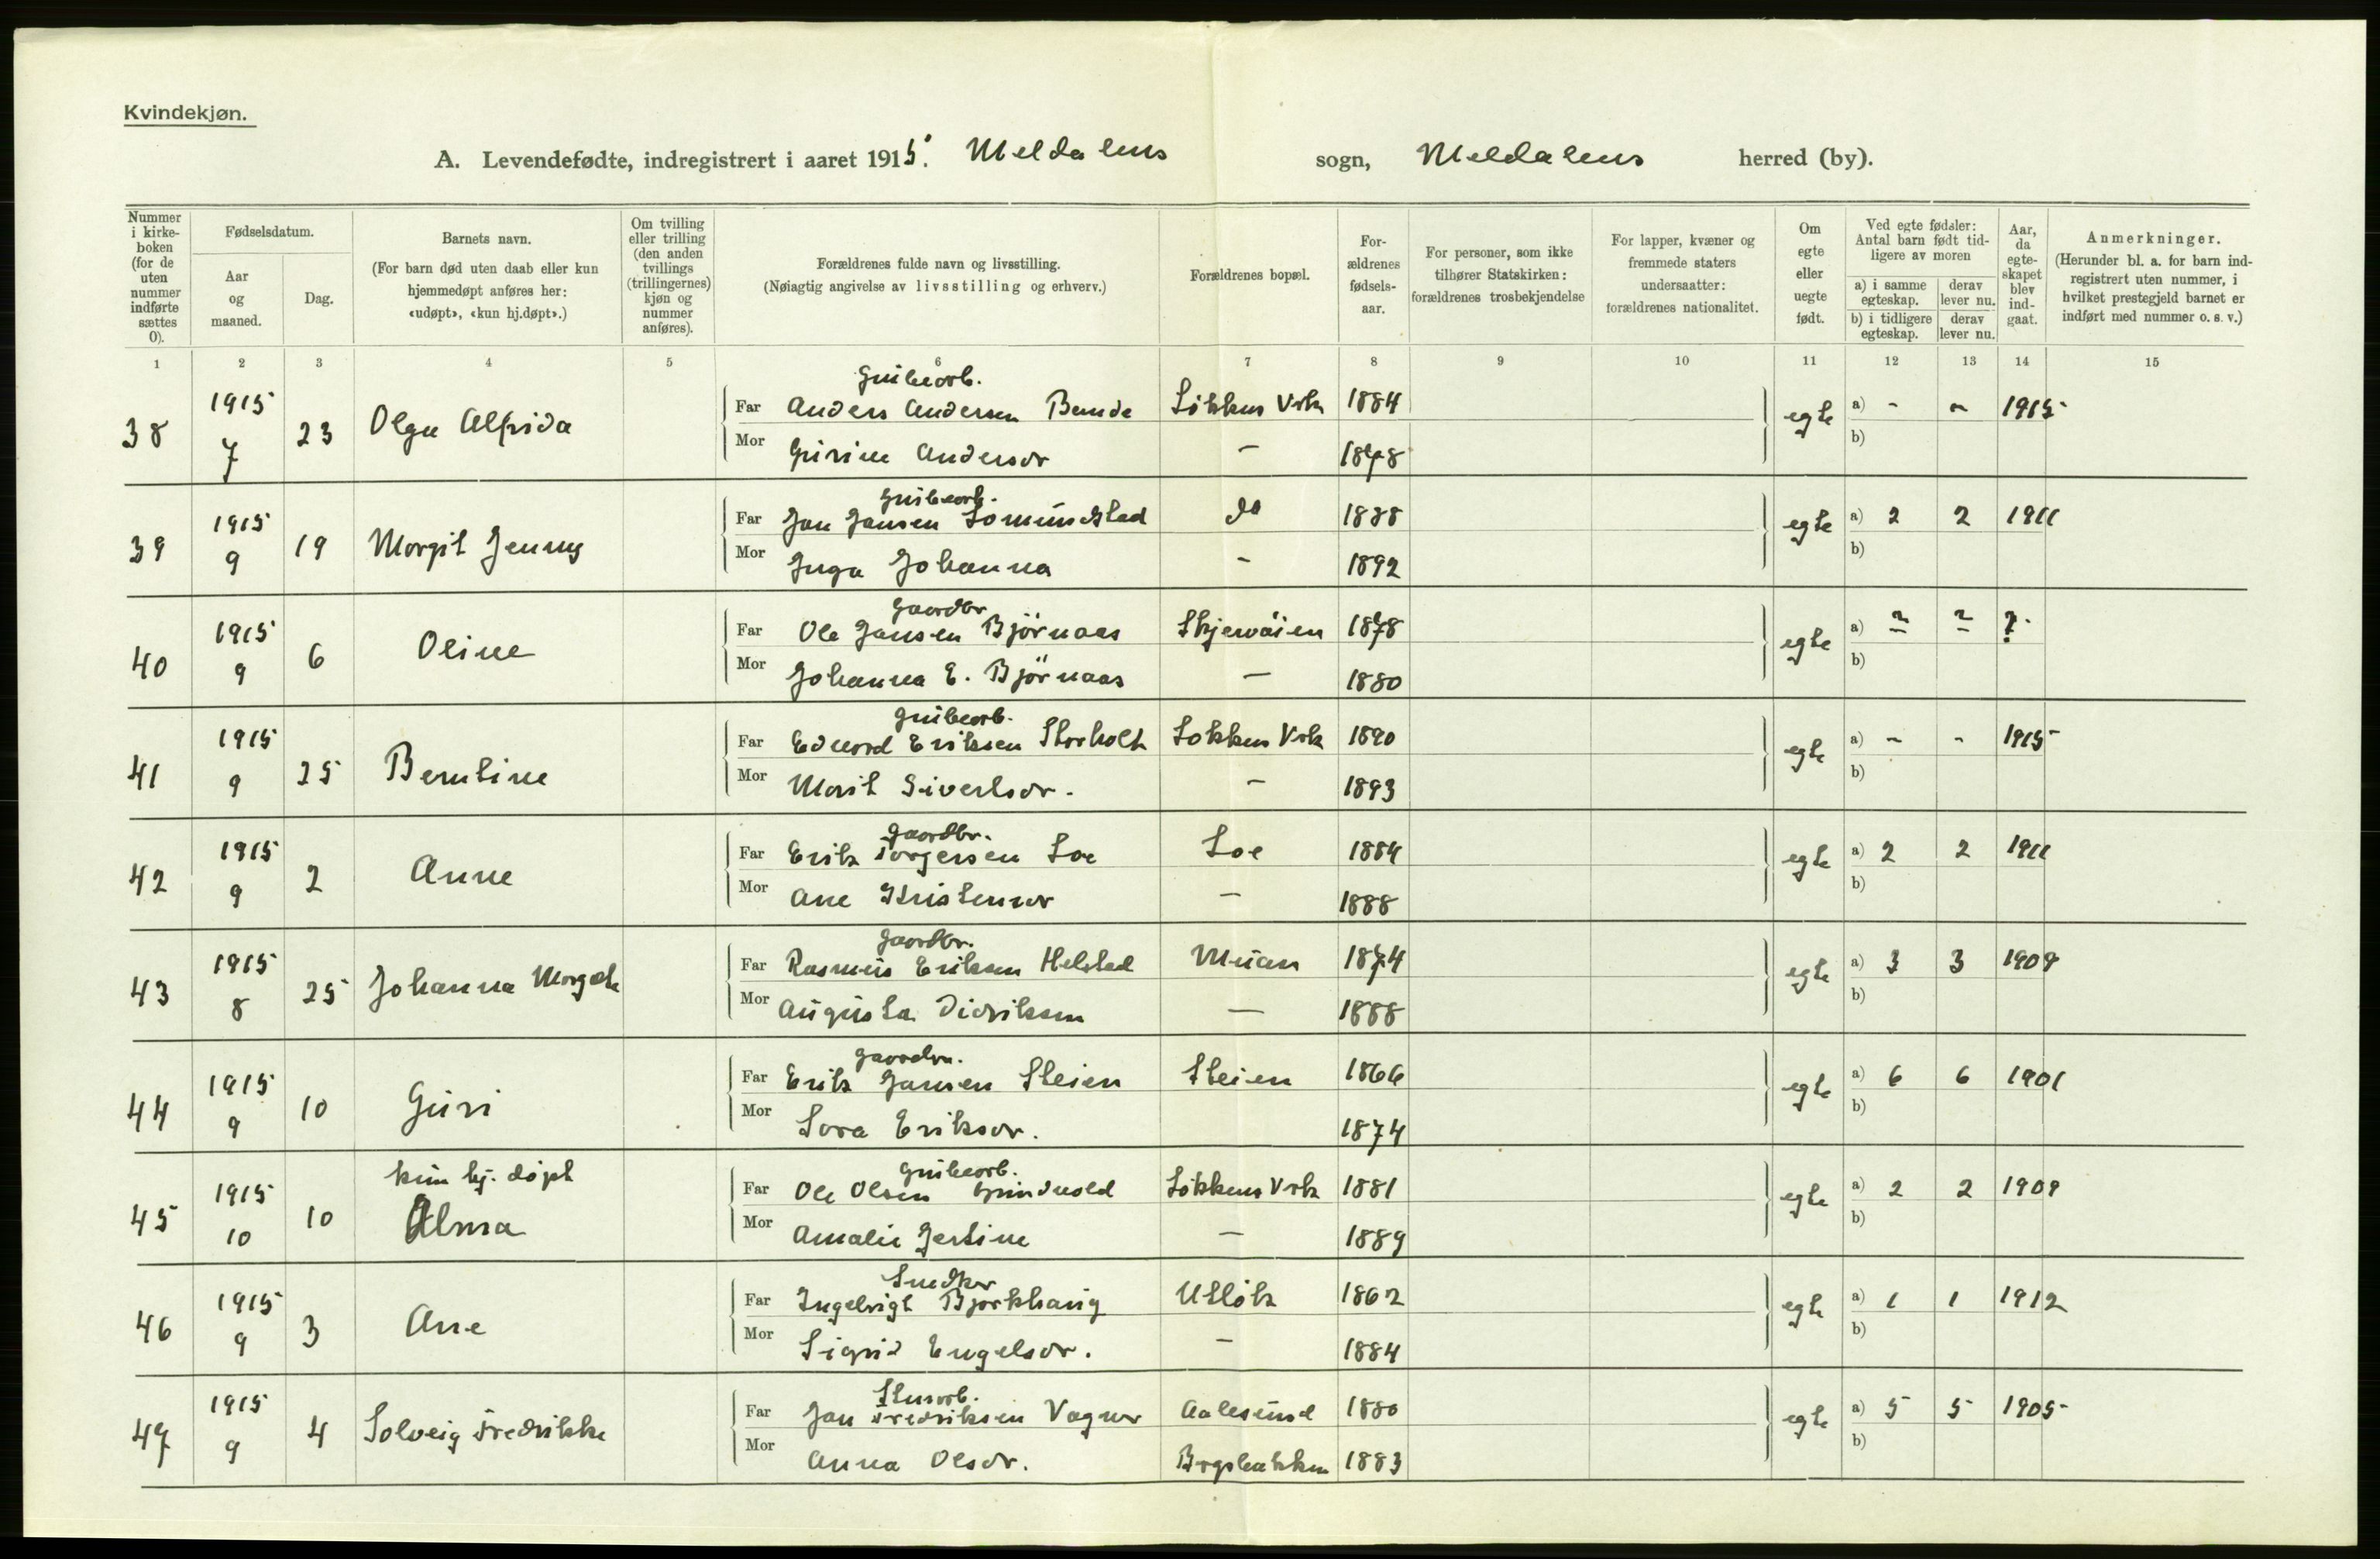 Kvindekjøn.
A. Levendefødte, indregistrert i aaret 1915. Meldalens sogn, Meldalens herred (by).
Nummer i kirke-boken (for de uten nummer indførte sættes 0).
Fødselsdatum.
Aar og maaned.
Dag.
Barnets navn.
(For barn død uten daab eller kun hjemmedøpt anføres her: «udøpt», «kun hj.døpt».)
Om tvilling eller trilling (den anden tvillings (trillingernes) kjøn og nummer anføres).
Forældrenes fulde navn og livsstilling.
(Nøiagtig angivelse av livsstilling og erhverv.)
Forældrenes bopæl.
For-ældrenes fødsels-aar.
For personer, som ikke tilhører Statskirken: forældrenes trosbekjendelse
For lapper, kvæner og fremmede staters undersaatter: forældrenes nationalitet.
Om egte eller uegte født.
Ved egte fødsler: Antal barn født tid-ligere av moren
a) i samme egteskap.
derav lever nu.
b) i tidligere egteskap.
derav lever nu.
Aar, da egte-skapet blev ind-gaat.
Anmerkninger.
(Herunder bl. a. for barn ind-registrert uten nummer, i hvilket prestegjeld barnet er indført med nummer o. s. v.)
1 2 3 4 5 6 7 8 9 10 11 12 13 14 15
Grubearb.
38 1915 7 23 Olga Alfrida Far Anders Andersen Løkkens Vrk 1884 egte a) - - 1915
Mor Gurine Andersdr - 1878 b)
Grubearb.
39 1915 9 19 Margit Jenny Far Jon Jonsen do 1888 egte a) 2 2 1911
Mor Inga Johanna - 1892 b)
Gaardbr
40 1915 9 6 Oline Far Ole Jonsen Bjørnaas 1878 egte a) ? ? ?
Mor Johanna E. Bjørnaas - 1880 b)
Grubearb.
41 1915 9 25 Berntine Far Edvard Eriksen Storholt Løkkens Vrk 1890 egte a) - - 1915
Mor Marit Sivertsdr. - 1893 b)
Gaardbr.
42 1915 9 2 Anne Far Erik Torgersen Loe Loe 1884 egte a) 2 2 1911
Mor Ane - 1888 b)
Gaardbr.
43 1915 8 25 Johanna Margrete Far Rasmus Eriksen Helstad Muan 1874 egte a) 3 3 1909
Mor Augusta Didriksen - 1888 b)
Gaardbr.
44 1915 9 10 Guri Far Erik Jonsen Steien Steien 1866 egte a) 6 6 1901
Mor Eriksdr. 1874 b)
kun hj. døpt Grubearb.
45 1915 10 10 Alma Far Ole Olsen Løkkens Vrk 1881 egte a) 2 2 1909
Mor Amalie - 1889 b)
Snedker
46 1915 9 3 Ane Far Bjørkhaug 1862 egte a) 1 1 1912
Mor Sigrid Engelsdr. - 1884 b)
47 1915 9 4 Solveig Fredrikke Far Jon Fredriksen Aalesund 1880 egte a) 5 5 1905
Mor Anna Olsdr. 1883 b)